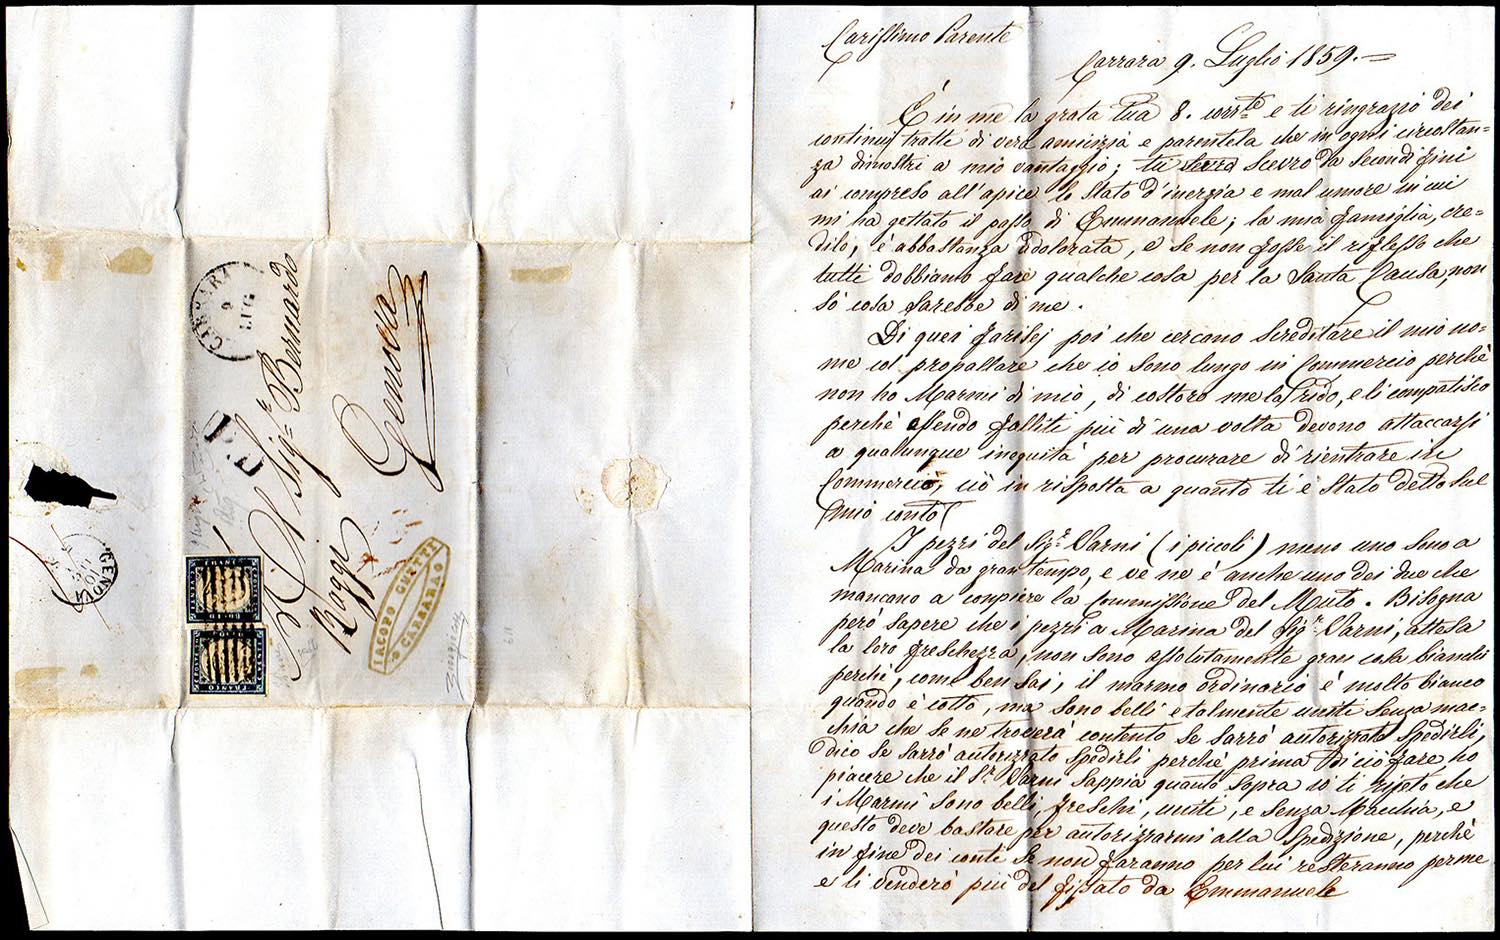 Carissimo Parente
Carrara 9. Luglio 1859.=
È in me la grata tua 8. corrte e ti ringrazio dei
continuj tratti di vera amicizia e parentela che in ogni circostan=
za dimostri a mio vantaggio; tu scevro da secondi fini
ai compreso all'apice lo stato d'inerzia e mal umore in cui
mi ha gettato il passo di Emmanuele; la mia famiglia, cre=
dilo, è abbastanza adolorata, e se non fosse il riflesso che
tutti dobbiamo fare qualche cosa per la Santa Causa, non
sò cosa sarebbe di me.
Di quei farisej poi che cercano screditare il mio no=
me col propallare che io sono lungo in Commercio perchè
non ho Marmi di mio, di costoro me la rido, e li compatisco
perchè essendo falliti più di una volta devono attaccarsi
a qualunque inequità per procurare di rientrare in
Commercio, ciò in risposta a quanto ti è stato detto sul
mio conto
I pezzi del Sigr. Varni (i piccoli) meno uno sono a
Marina da gran tempo, e ve ne è anche uno dei due che
mancano a compiere la Commissione del Muto. Bisogna
però sapere che i pezzi a Marina del Sigr. Varni, attesa
la loro freschezza, non sono assolutamente gran cosa bianchi
perchè, come ben sai, il marmo ordinario è molto bianco
quando è cotto, ma sono belli e talmente uniti senza mac=
chia che se ne troverà contento se sarrò autorizzato spedirli,
dico se sarrò autorizzato spedirli perchè prima di ciò fare, ho
piacere che il Sr. Varni sappia quanto sopra io ti ripeto che
i Marmi sono belli freschi, uniti, e senza Macchia, e
questo deve bastare per autorizzarmi alla spedizione, perchè
in fine dei conti se non faranno per lui resteranno per me
e li venderò più del fissato da Emmanuele
CARRARA
9
LUG
P.D.
Al Sigr. Bernardo
Raggi
Genova
IACOPO CUETTI
CARRARA
GENOVA
10
FRANCO
BOLLO